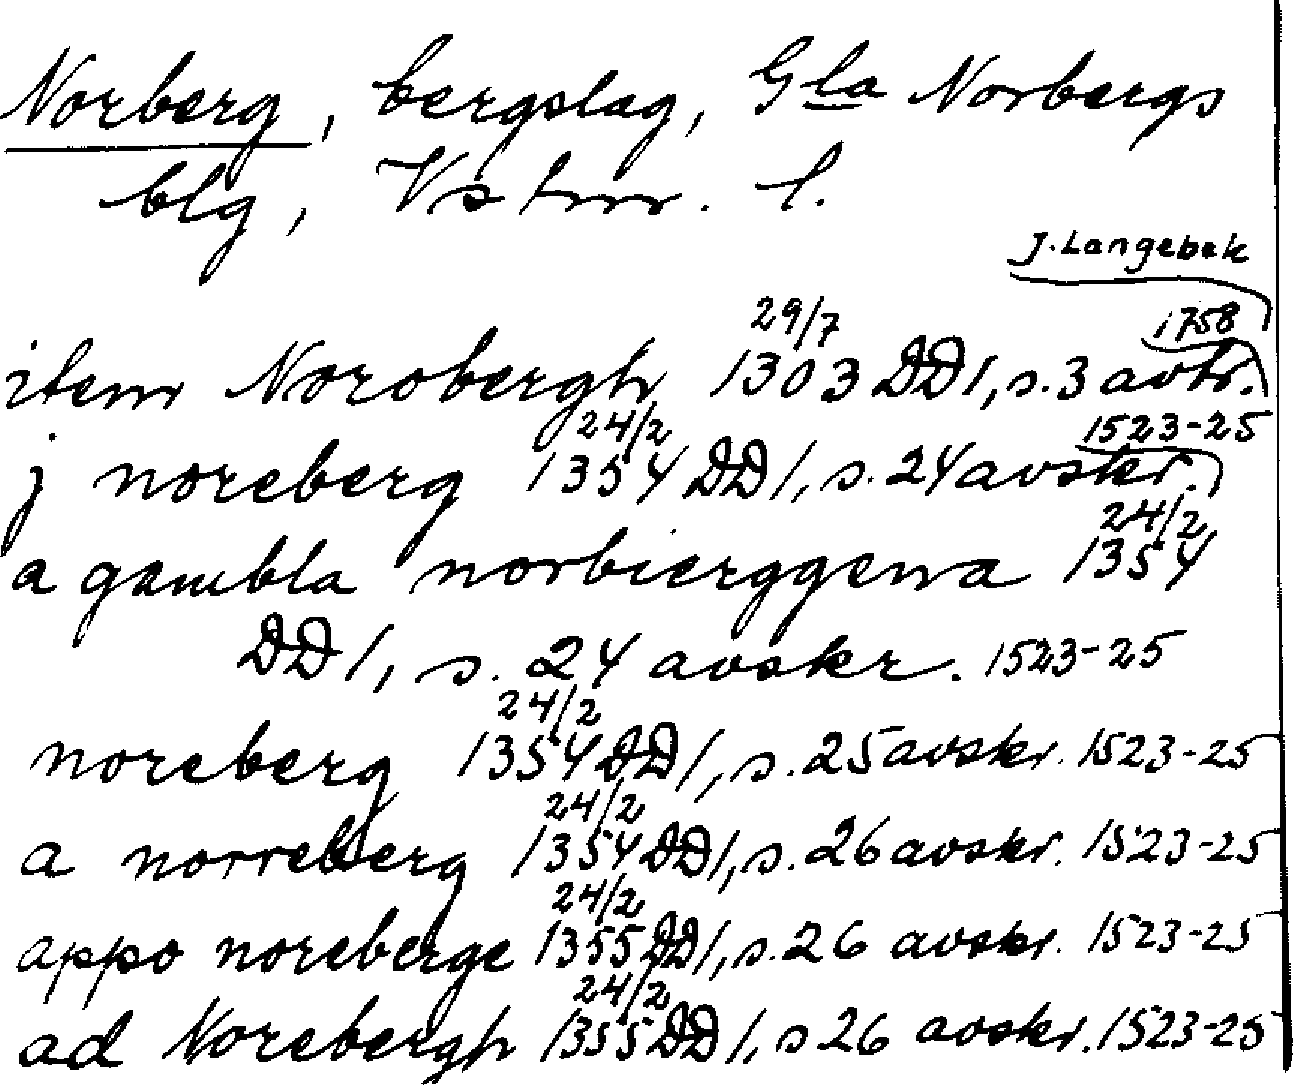 Norberg, bergslag, Gla Norbergs
blg, Vstm. l.
J. Langebek
29/7 1758
item Norobergh 1303 DD1, s. 3 avtr.
24/2 1523-25
j noreberg 1354 DD1, s. 24 avskr.
24/2
a gambla norbierggena 1354
DD1, s. 24 avskr. 1523-25
24/2
noreberg 1354 DD1, s. 25 avskr. 1523-25
24/2
a norreberg 1354 DD1, s. 26 avskr. 1523-25
24/2
appo noreberge 1355 DD1, s. 26 avskr. 1523-25
24/2
ad Norebergh 1355 DD1, s 26 avskr. 1523-25